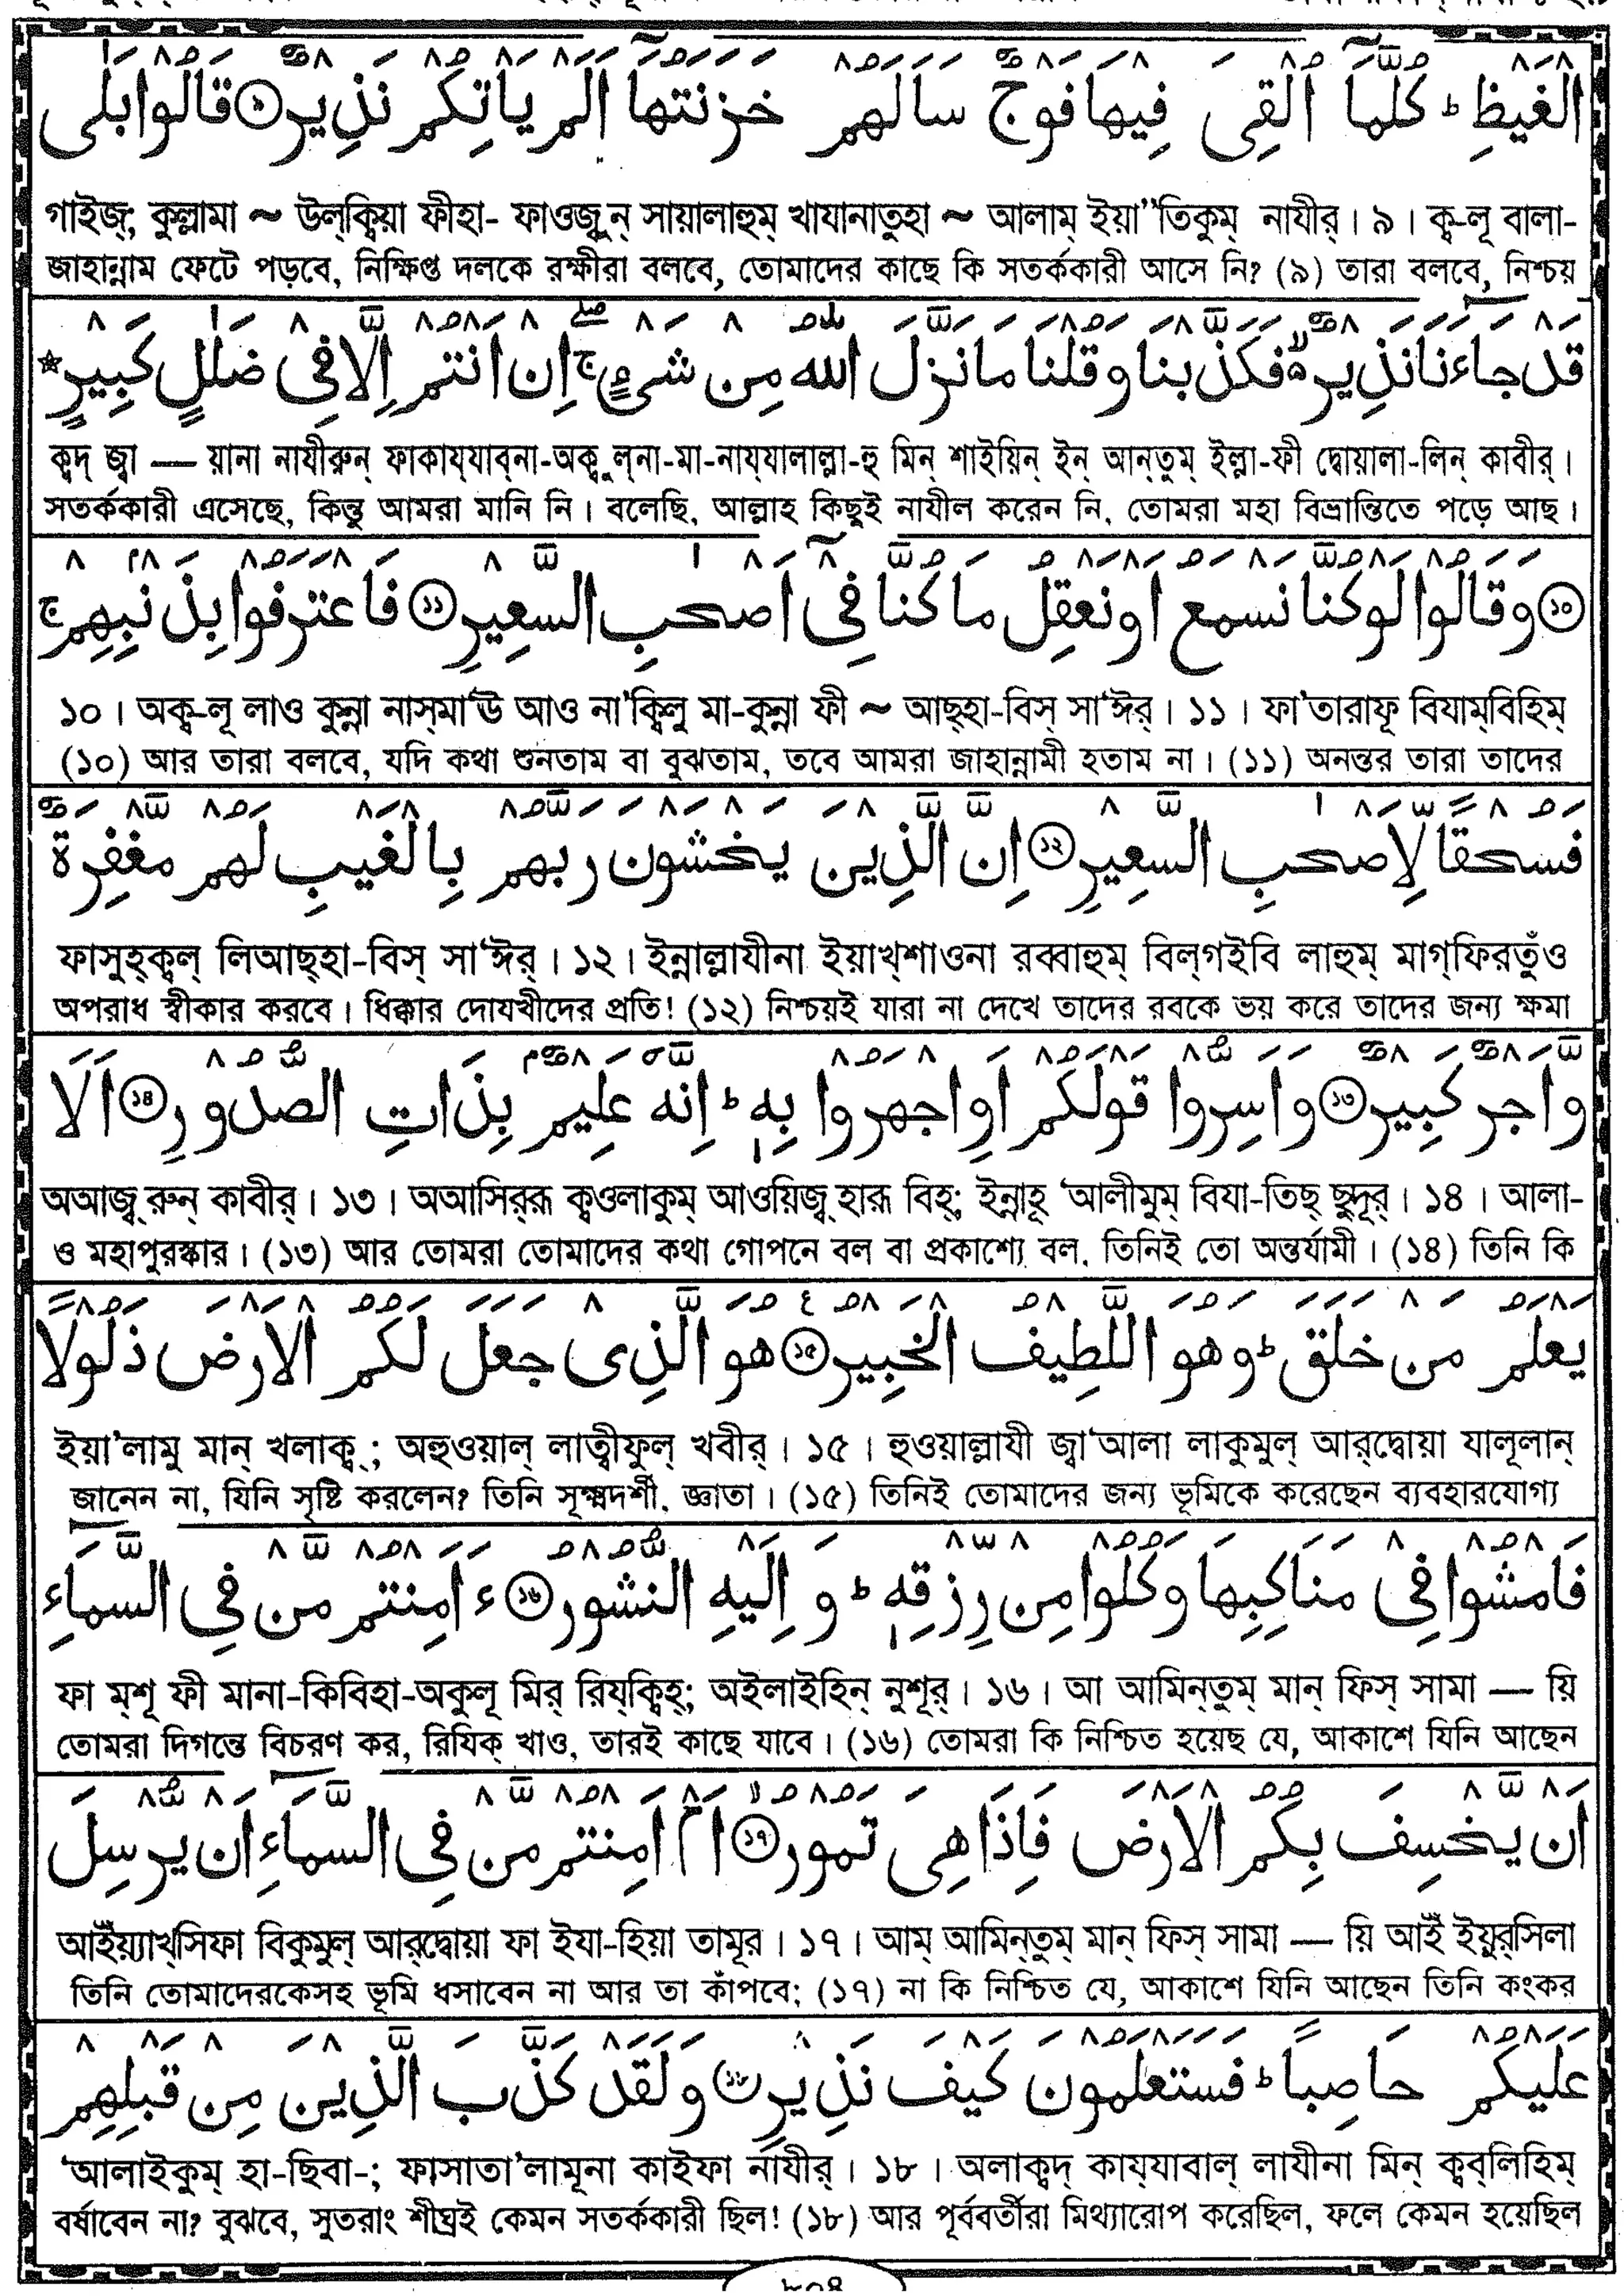 الْغَيْظِ ؕ كُلَّمَاۤ اُلْقِىَ فِيْهَا فَوْجٌ سَاَلَهُمْ خَزَنَتُهَاۤ اَلَمْ يَاْتِكُمْ نَذِيْرٌ ⑨ قَالُوْا بَلٰى
গাইজ্; কুল্লামা ~ উল্ক্বিয়া ফীহা- ফাওজুন্ সায়ালাহুম্ খাযানাতুহা ~ আলাম্ ইয়া”তিকুম্ নাযীর্। ৯। ক্ব-লূ বালা-
জাহান্নাম ফেটে পড়বে, নিক্ষিপ্ত দলকে রক্ষীরা বলবে, তোমাদের কাছে কি সতর্ককারী আসে নি? (৯) তারা বলবে, নিশ্চয়
قَدْ جَآءَنَا نَذِيْرٌ ۙ۬ فَكَذَّبْنَا وَقُلْنَا مَا نَزَّلَ اللّٰهُ مِنْ شَىْءٍ ۖۚ اِنْ اَنْتُمْ اِلَّا فِىْ ضَلٰلٍ كَبِيْرٍ
ক্বদ্ জ্বা — য়ানা নাযীরুন্ ফাকায্যাব্না-অক্বুল্না-মা-নায্যালাল্লা-হু মিন্ শাইয়িন্ ইন্ আন্তুম্ ইল্লা-ফী দ্বোয়ালা-লিন্ কাবীর্।
সতর্ককারী এসেছে, কিন্তু আমরা মানি নি। বলেছি, আল্লাহ কিছুই নাযীল করেন নি, তোমরা মহা বিভ্রান্তিতে পড়ে আছ।
⑩ وَقَالُوْا لَوْ كُنَّا نَسْمَعُ اَوْ نَعْقِلُ مَا كُنَّا فِىْۤ اَصْحٰبِ السَّعِيْرِ ⑪ فَاعْتَرَفُوْا بِذَنْۢبِهِمْ ۚ
১০। অক্ব-লূ লাও কুন্না নাস্মা‘ঊ আও না’ক্বিলু মা-কুন্না ফী ~ আছ্হা-বিস্ সা‘ঈর্। ১১। ফা’তারাফূ বিযাম্বিহিম্
(১০) আর তারা বলবে, যদি কথা শুনতাম বা বুঝতাম, তবে আমরা জাহান্নামী হতাম না। (১১) অনন্তর তারা তাদের
فَسُحْقًا لِّاَصْحٰبِ السَّعِيْرِ ⑫ اِنَّ الَّذِيْنَ يَخْشَوْنَ رَبَّهُمْ بِالْغَيْبِ لَهُمْ مَّغْفِرَةٌ
ফাসুহ্ক্বল্ লিআছ্হা-বিস্ সা‘ঈর্। ১২। ইন্নাল্লাযীনা ইয়াখ্শাওনা রব্বাহুম্ বিল্গইবি লাহুম্ মাগ্ফিরতুঁও
অপরাধ স্বীকার করবে। ধিক্কার দোযখীদের প্রতি! (১২) নিশ্চয়ই যারা না দেখে তাদের রবকে ভয় করে তাদের জন্য ক্ষমা
وَّاَجْرٌ كَبِيْرٌ ⑬ وَاَسِرُّوْا قَوْلَكُمْ اَوِ اجْهَرُوْا بِهٖ ؕ اِنَّهٗ عَلِيْمٌۢ بِذَاتِ الصُّدُوْرِ ⑭ اَلَا
অআজ্বরুন্ কাবীর্। ১৩। অআসির্রূ ক্বওলাকুম্ আওয়িজ্বহারূ বিহ্; ইন্নাহূ ‘আলীমুম্ বিযা-তিছ্ ছুদূর্। ১৪। আলা-
ও মহাপুরস্কার। (১৩) আর তোমরা তোমাদের কথা গোপনে বল বা প্রকাশ্যে বল, তিনিই তো অন্তর্যামী। (১৪) তিনি কি
يَعْلَمُ مَنْ خَلَقَ ؕ وَهُوَ اللَّطِيْفُ الْخَبِيْرُ ⑮ هُوَ الَّذِىْ جَعَلَ لَكُمُ الْاَرْضَ ذَلُوْلًا
ইয়া’লামু মান্ খলাক্ব্; অহুওয়াল্ লাত্বীফুল্ খবীর্। ১৫। হুওয়াল্লাযী জ্বা‘আলা লাকুমুল্ আর্দ্বোয়া যালূলান্
জানেন না, যিনি সৃষ্টি করলেন? তিনি সূক্ষ্মদর্শী, জ্ঞাতা। (১৫) তিনিই তোমাদের জন্য ভূমিকে করেছেন ব্যবহারযোগ্য
فَامْشُوْا فِىْ مَنَاكِبِهَا وَكُلُوْا مِنْ رِّزْقِهٖ ؕ وَاِلَيْهِ النُّشُوْرُ ⑯ ءَاَمِنْتُمْ مَّنْ فِى السَّمَآءِ
ফা ম্শূ ফী মানা-কিবিহা-অকুলূ মির্ রিয্ক্বিহ্; অইলাইহিন্ নুশূর্। ১৬। আ আমিন্তুম্ মান্ ফিস্ সামা — য়ি
তোমরা দিগন্তে বিচরণ কর, রিযিক্ খাও, তারই কাছে যাবে। (১৬) তোমরা কি নিশ্চিত হয়েছ যে, আকাশে যিনি আছেন
اَنْ يَّخْسِفَ بِكُمُ الْاَرْضَ فَاِذَا هِىَ تَمُوْرُ ⑰ اَمْ اَمِنْتُمْ مَّنْ فِى السَّمَآءِ اَنْ يُّرْسِلَ
আইঁয়্যাখ্সিফা বিকুমুল্ আর্দ্বোয়া ফা ইযা-হিয়া তামূর। ১৭। আম্ আমিন্তুম্ মান্ ফিস্ সামা — য়ি আইঁ ইয়ুর্সিলা
তিনি তোমাদেরকেসহ ভূমি ধসাবেন না আর তা কাঁপবে; (১৭) না কি নিশ্চিত যে, আকাশে যিনি আছেন তিনি কংকর
عَلَيْكُمْ حَاصِبًا ؕ فَسَتَعْلَمُوْنَ كَيْفَ نَذِيْرِ ⑱ وَلَقَدْ كَذَّبَ الَّذِيْنَ مِنْ قَبْلِهِمْ
‘আলাইকুম্ হা-ছিবা-; ফাসাতা’লামূনা কাইফা নাযীর্। ১৮। অলাক্বদ্ কায্যাবাল্ লাযীনা মিন্ ক্বব্লিহিম্
বর্ষাবেন না? বুঝবে, সুতরাং শীঘ্রই কেমন সতর্ককারী ছিল! (১৮) আর পূর্ববর্তীরা মিথ্যারোপ করেছিল, ফলে কেমন হয়েছিল